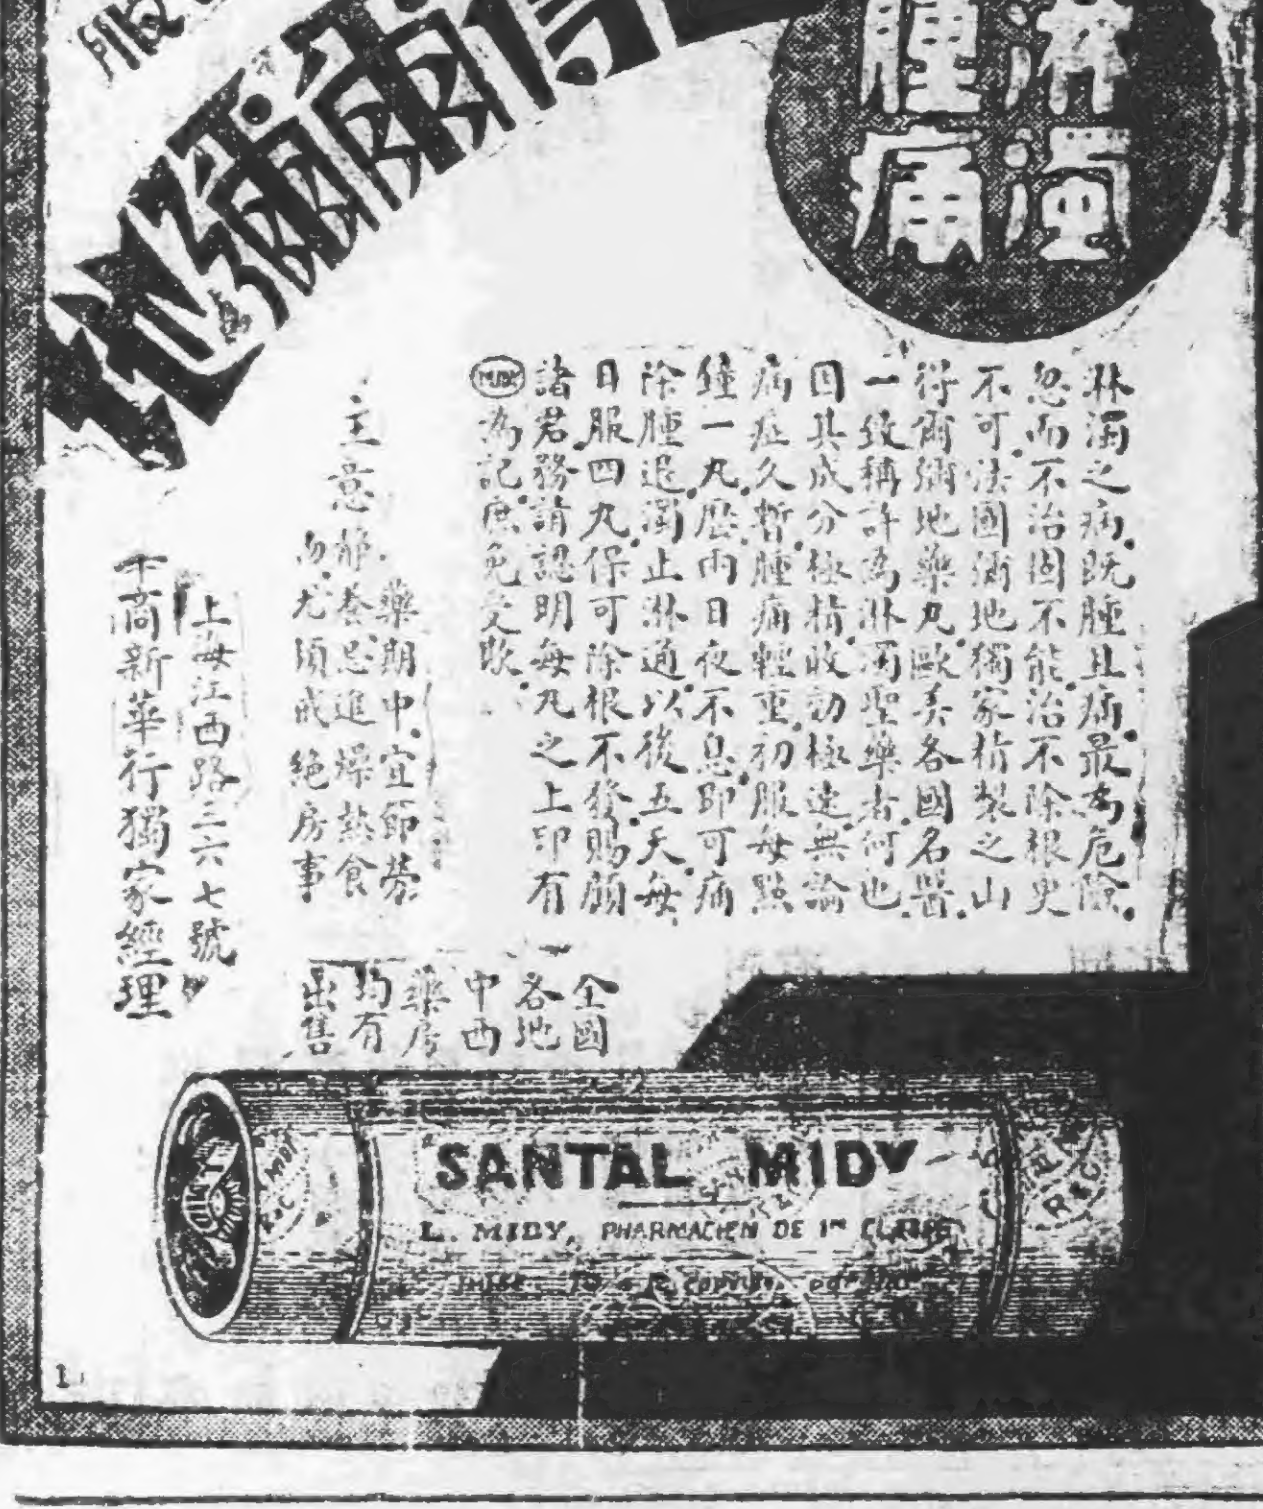 淋濁
腫痛
服
淋濁之病。既腫且痛。最為危險。
忽而不治固不能。治不除根更
不可。法國彌地獨家精製之山
得爾彌地藥丸。歐美各國名醫。
一致稱許為淋濁聖藥者。何也。
因其成分極精。收効極速。無論
病症久暫。腫痛輕重。初服每點
鐘一丸。歷兩日夜不息。即可痛
除腫退。濁止淋通。以後五天。每
日服四丸。保可除根不發。賜顧
諸君。務請認明每丸之上印有
MIDY為記。庶免受欺。
主意
藥期中。宜節勞
靜養。忌進燥熱食
物。尤須戒絕房事
上海江西路三六七號
千商新華行獨家經理
全國
各地
中西
藥房
均有
出售
SANTAL MIDY
L. MIDY, PHARMACIEN DE 1re CLASSE
MIDY
R&C